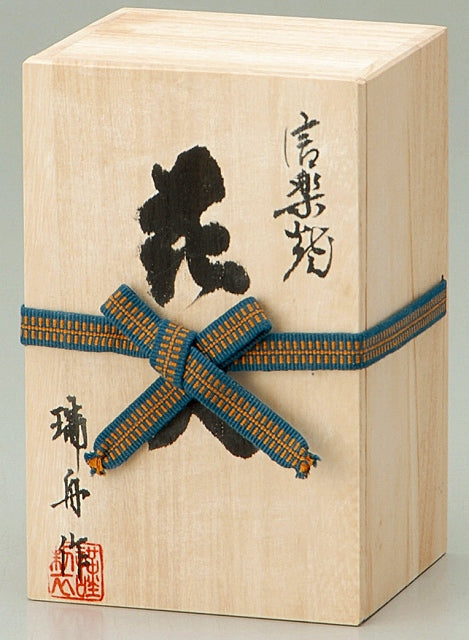 信楽焼
花入
瑞舟作